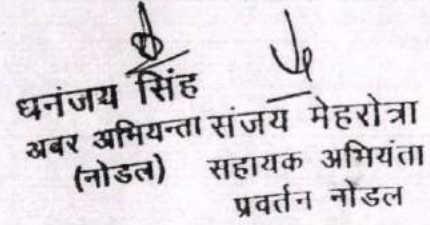 धनंजय सिंह
अबर अभियन्ता
(नोडल)
संजय मेहरोत्रा
सहायक अभियंता
प्रवर्तन नोडल